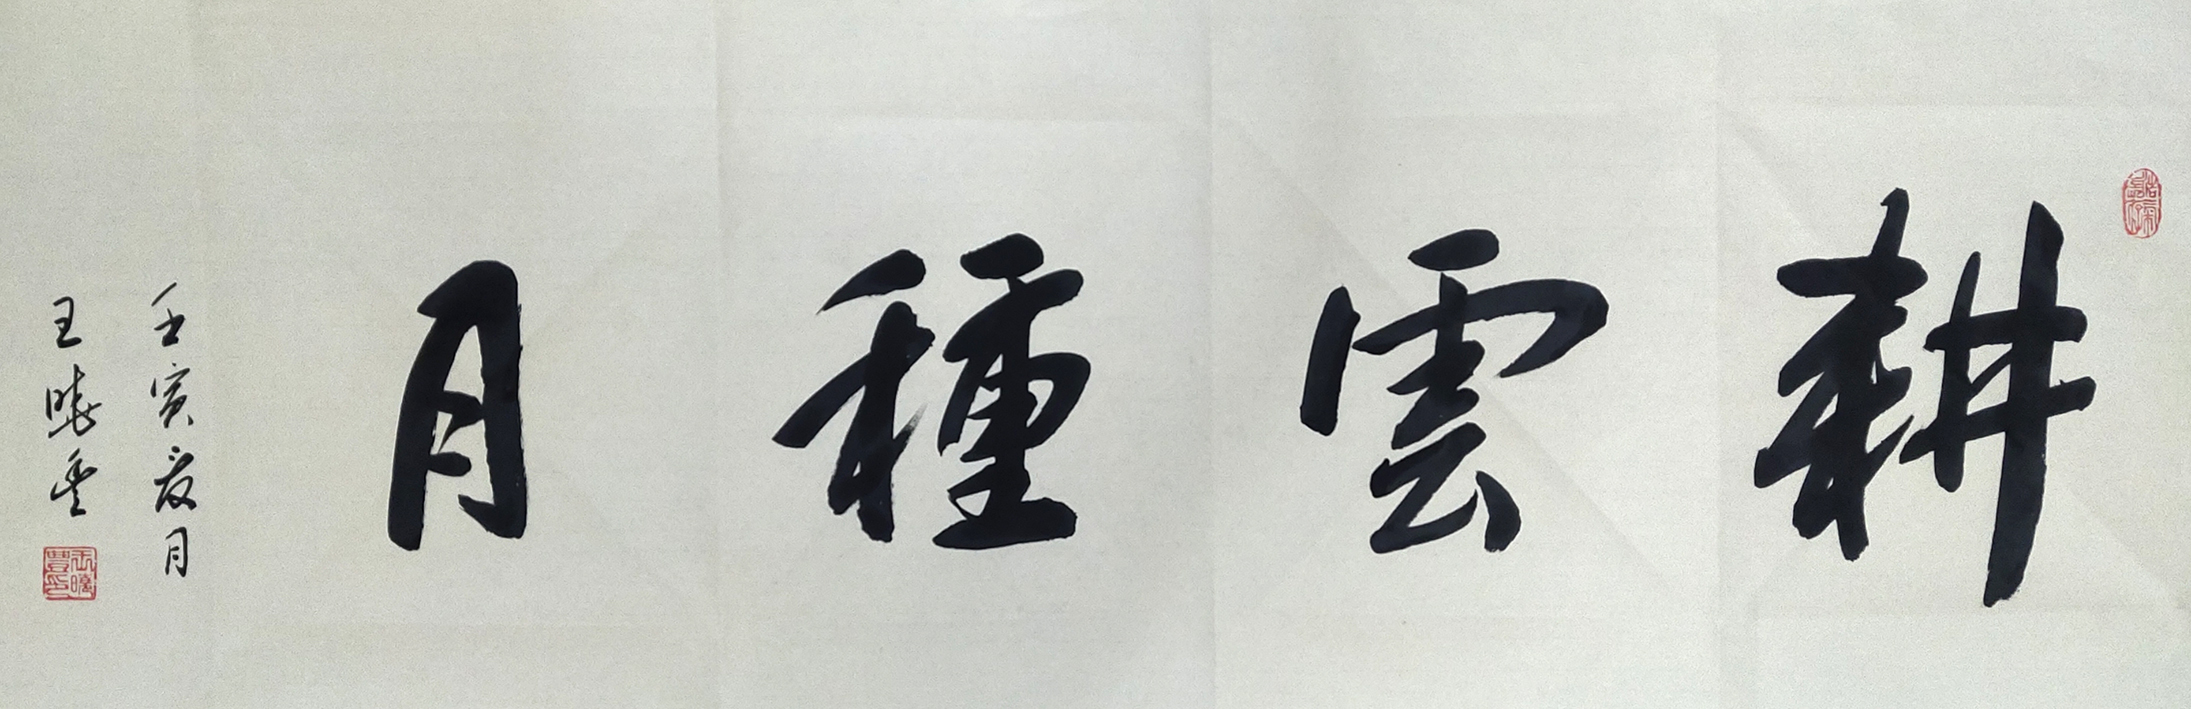 耕雲種月
壬寅夏月
王曉豊